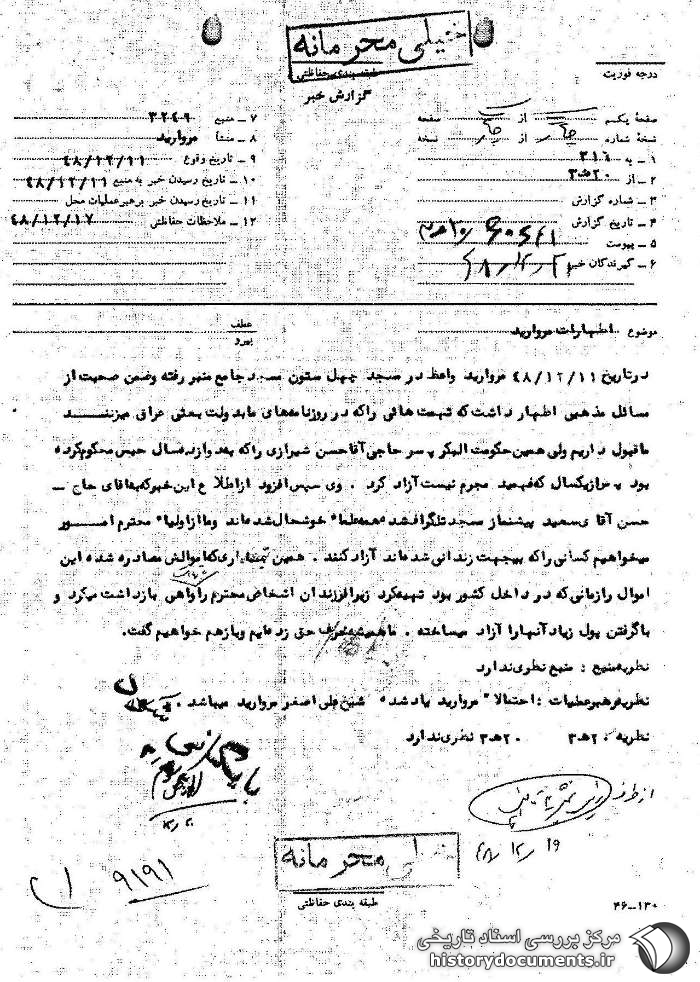 خیلی محرمانه
طبقه بندی حفاظتی
گزارش خبر
درجه فوریت
صفحه یکم از یک صفحه
نسخه شماره چهار از چهار نسخه
۱ ـ به ۳۱۶
۲ ـ از ۲۰ ه‍ ۳
۳ ـ شماره گزارش
۴ ـ تاریخ گزارش
۵ ـ پیوست
۶ ـ گیرندگان خبر
۷ ـ منبع ۳۲۴۹
۸ ـ منشأ مروارید
۹ ـ تاریخ وقوع ۴۸/۱۲/۱۱
۱۰ ـ تاریخ رسیدن خبر به منبع ۴۸/۱۲/۱۱
۱۱ ـ تاریخ رسیدن خبر برهبر عملیات محل
۱۲ ـ ملاحظات حفاظتی ۴۸/۱۲/۱۷
موضوع اظهارات مروارید
عطف
پیرو
درتاریخ ۴۸/۱۲/۱۱ مروارید واعظ در مسجد چهل ستون مسجد جامع منبر رفته وضمن صحبت از
مسائل مذهبی اظهار داشت که تهمت هائی را که در روزنامه های ما بدولت بعثی عراق میزنند
ما قبول داریم ولی همین حکومت البکر پسر حاجی آقا حسن شیرازی را که بدوازده سال حبس محکوم کرده
بود پس از یکسال که فهمید مجرم نیست آزاد کرد . وی سپس افزود از اطلاع این خبر که به آقای حاج ـ
حسن آقای سعید پیشنماز مسجد تلگراف شده همه علما خوشحال شده اند وما از اولیا محترم امور
میخواهیم کسانی را که بیجهت زندانی شده اند آزاد کنند . همین تیمساری که اموالش مصادره شده این
اموال را زمانی که در داخل کشور بود تهیه کرد زیرا فرزندان اشخاص محترم را واهی بازداشت میکرد و
با گرفتن پول زیاد آنها را آزاد میساخته . ما همیشه حرف حق زده ایم وباز هم خواهیم گفت.
نظریه منبع : منبع نظری ندارد
نظریه رهبر عملیات : احتمالا" مروارید یاد شده شیخ علی اصغر مروارید میباشد .
نظریه : ۲۰ ه‍ ۳ ۲۰ ه‍ ۳ نظری ندارد
بایگانی
از طرف
۴۸/۱۲/۱۹
۹۱۹۱
خیلی محرمانه
طبقه بندی حفاظتی
۴۶-۱۳۰
مرکز بررسی اسناد تاریخی
historydocuments.ir